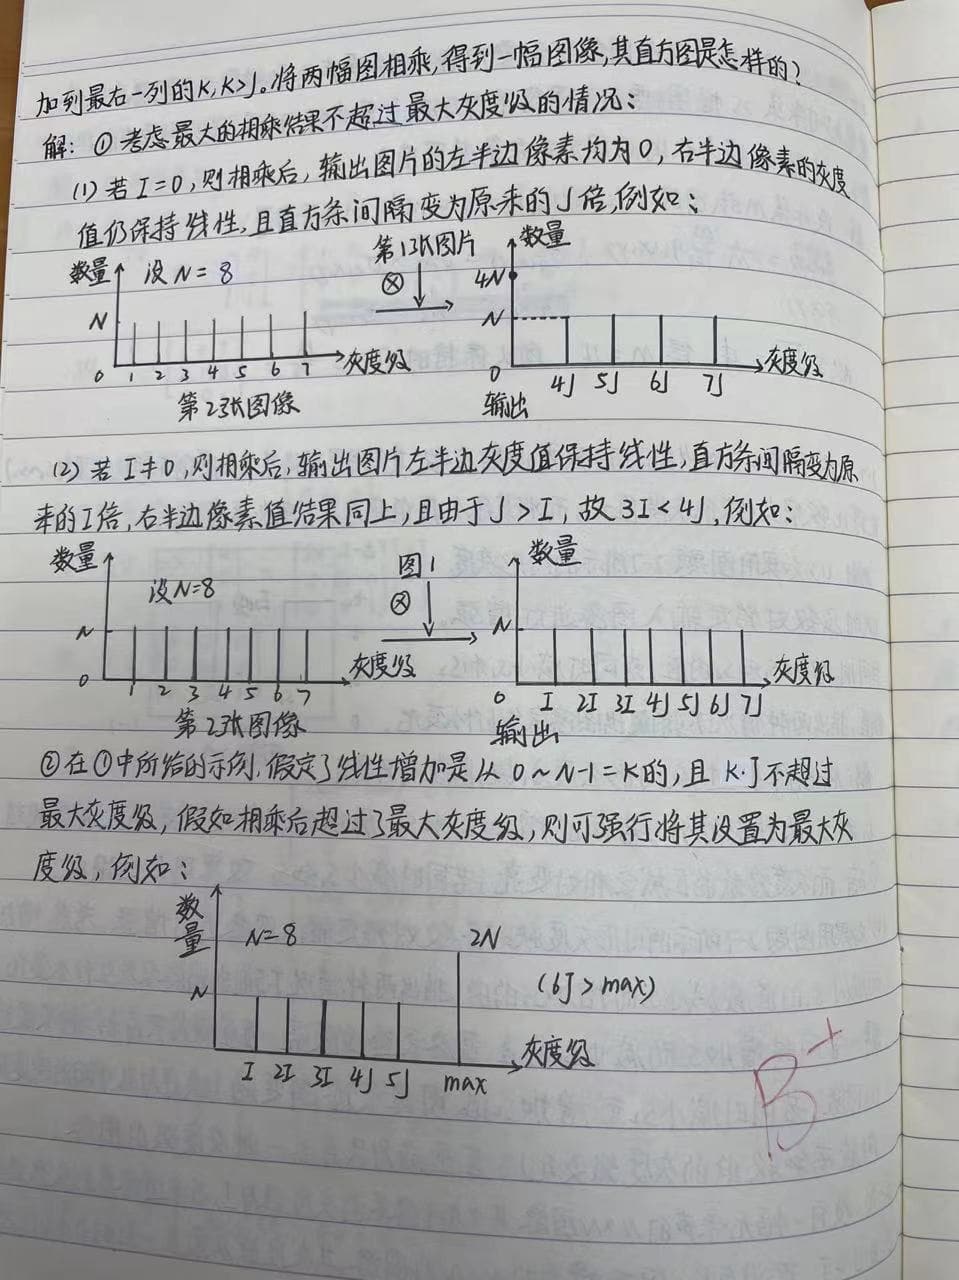 加到最右一列的K,K>J。将两幅图相乘,得到一幅图像,其直方图是怎样的?
解: ①考虑最大的相乘结果不超过最大灰度级的情况:
(1)若I=0,则相乘后,输出图片的左半边像素均为0,右半边像素的灰度
值仍保持线性,且直方条间隔变为原来的J倍,例如:
数量 设N=8 第1张图片 数量
⊗ 4N
N N
0 1 2 3 4 5 6 7 灰度级 0 4J 5J 6J 7J 灰度级
第2张图像 输出
(2)若I≠0,则相乘后,输出图片左半边灰度值保持线性,直方条间隔变为原
来的I倍,右半边像素值结果同上,且由于J>I,故3I<4J,例如:
数量 设N=8 图1 数量
⊗
N N
0 1 2 3 4 5 6 7 灰度级 0 I 2I 3I 4J 5J 6J 7J 灰度级
第2张图像 输出
②在①中所给的示例,假定了线性增加是从0~N-1=K的,且K·J不超过
最大灰度级,假如相乘后超过了最大灰度级,则可强行将其设置为最大灰
度级,例如:
数量 N=8 2N
N (6J>max)
I 2I 3I 4J 5J max 灰度级
B+